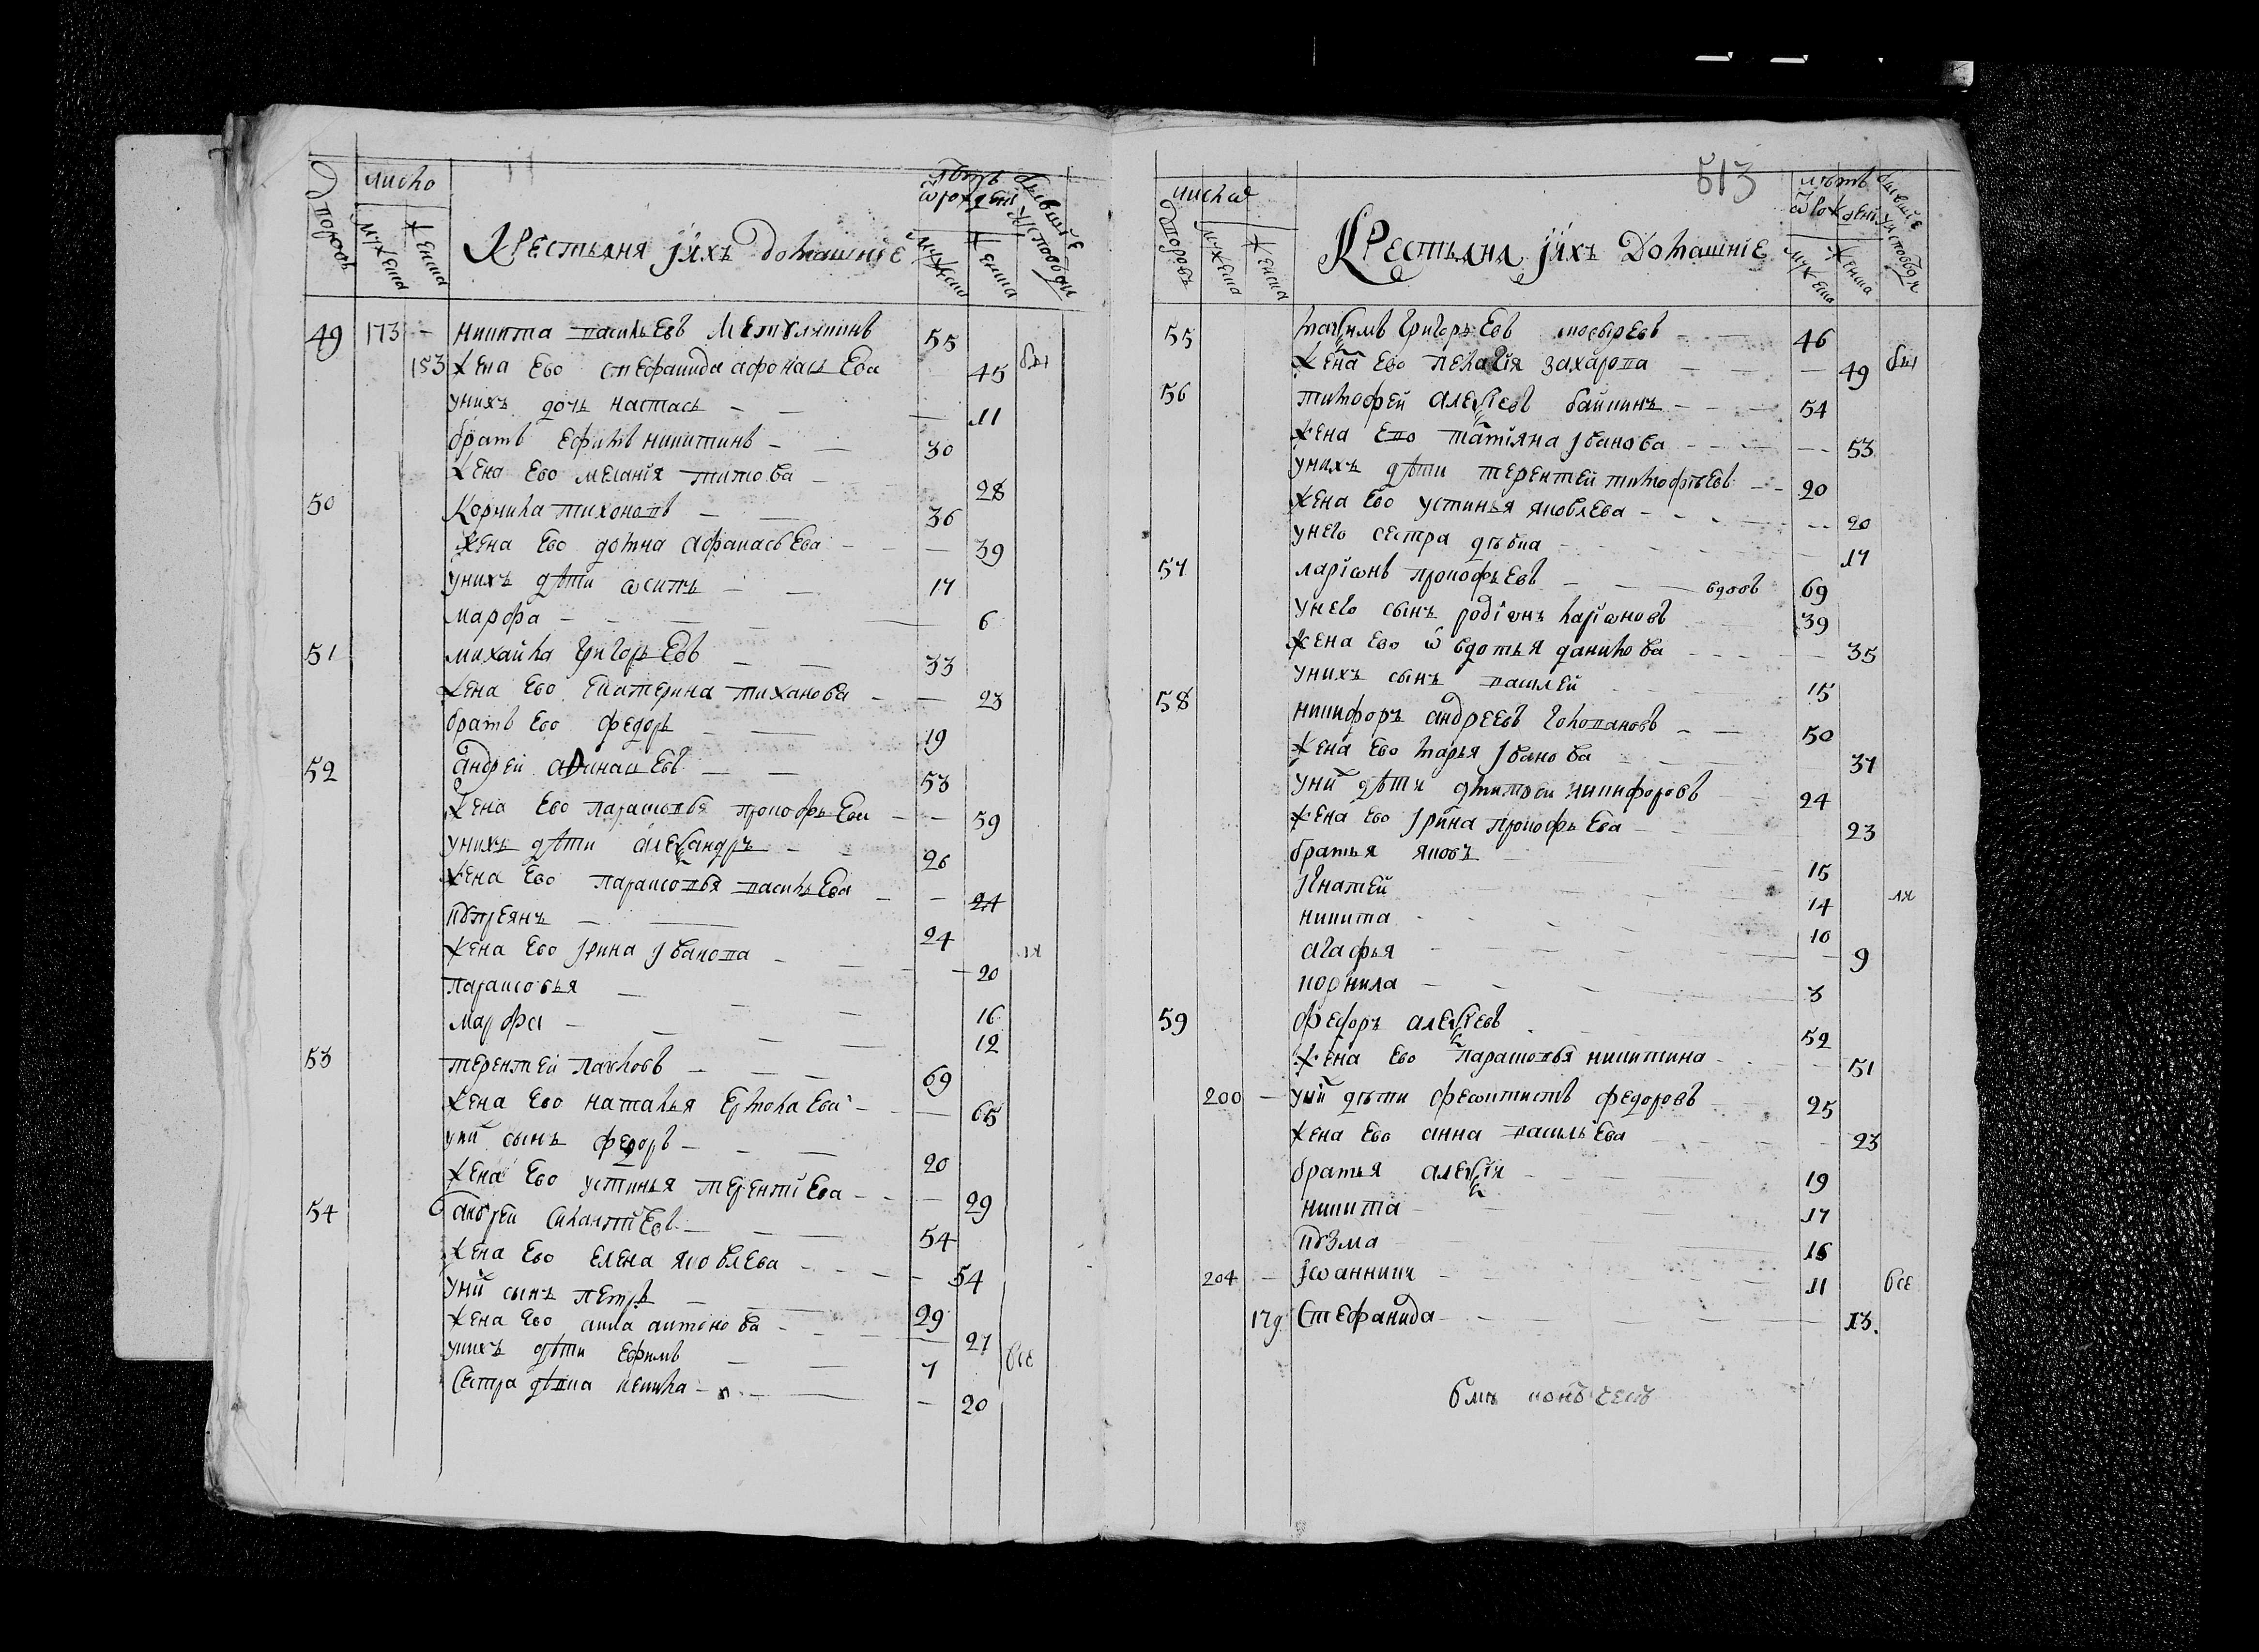 Дворовъ
число
мужеска
женска
Крестьяня јихъ домашніе
лѣтъ ѿрожденія
мужеска
женска
бывшіе уисповеди
49 173 - никита василъевъ метелягинъ 55
153 жена ево стефанида афонасьева 45 бы
унихъ дочь настась - - 11
братъ ефимъ никитинъ - 30
жена ево меланія титова - 28
50 корнила тихоновъ - 36
жена ево домна афанасьева - - 39
унихъ дѣти ѡсипъ - - 17
марфа - - - 6
51 михайла григорьевъ - - 33
жена ево екатерина тиханова - - 23
братъ ево федоръ - - 19
52 андрей - - 53
жена ево парасковья прокофьева - - 59
унихъ дѣти александръ - - 26
жена ево парасковья василъева - - 24
кѹпреянъ - - 24
жена ево јрина јванова - - - 20 ли
парасковья - - - 16
марфа - - - 12
53 терентей павловъ - - - 69
жена ево наталья ермолаева - - 65
уни сынъ федоръ - - - 20
жена ево устинья терентіева - - - 29
54 андрей силантіевъ - - 54
жена ево елена яковлева - - - - 54
уни сынъ петръ - - 29
жена ево анна антонова - - - 27
унихъ дѣти ефимъ - - 7 все
сестра дѣвка - - - 20
513
Дворовъ
числа
мужеска
женска
Крестьяня јихъ домашніе
лѣтъ ѿрожденія
мужеска
женска
бывшіе уисповедя
55 маѯимъ григорьевъ - - 46
жена ево пелагія захарова - - - 49 бы
56 тимофей алеѯіевъ - - - 54
жена ево татіяна јванова - - - - 53
унихъ дѣти терентей тимофѣевъ - - 20
жена ево устинья яковлева - - - - 20
унего сестра дѣвка - - - 17
57 ларіѡнъ прокофьевъ - - вдовъ 69
унего сынъ родіѡнъ ларіѡновъ 39
жена ево ѡвдотья данилова - - - - 35
унихъ сынъ василей - 15
58 никифоръ андреевъ - - 50
жена ево марья јванова - 37
уни дѣти дмитрей никифоровъ 24
жена ево јрина прокофьева - 23
братья яковъ - 15
јгнатей 14 ли
никита - - - 10
агафья - - - - 9
корнила - - - 3
59 федоръ алеѯіевъ - - 52
жена ево парасковья никитина - - 51
200 - уни дѣти феѡктистъ федоровъ - 25
жена ево анна василъева - - 23
братья алеѯіи - - - 19
никита - - - 17
кѹзма - - 16
204 - јѡанникіи - - - 11 все
179 стефанида - - - - 13.